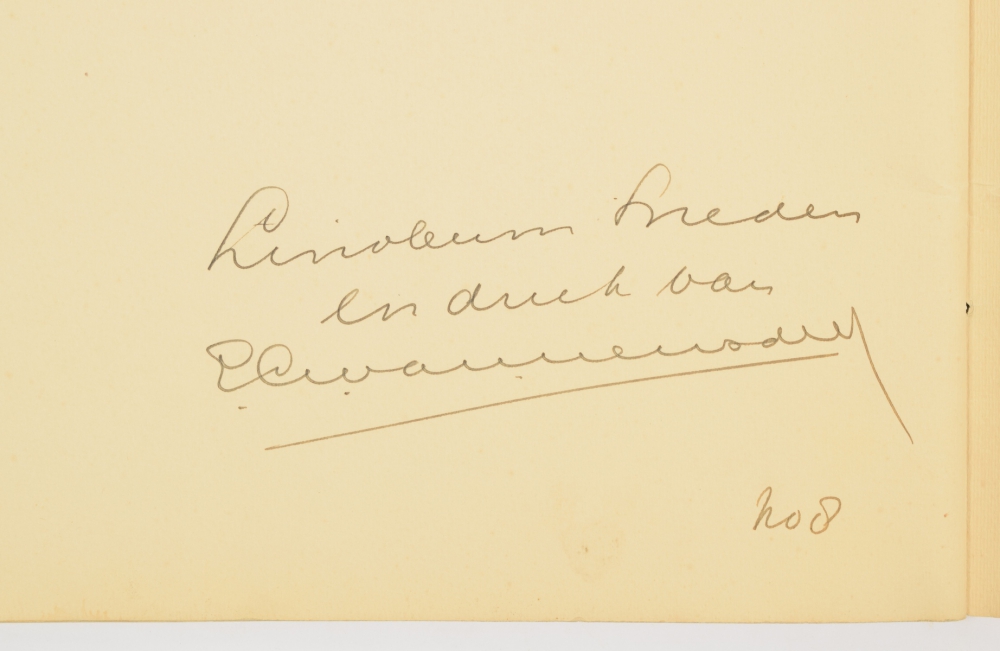 Linoleum Sneden
en druk van
no 8